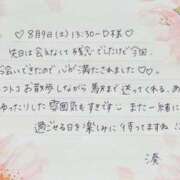 ♡8月9日(土) 13:30~ D様♡
先日は会えなくて残念でしたけど今回
お会いできたので心が満たされました♡。
トコトコお散歩しながら駅まで送ってくれる、あの
ゆったりした雰囲気もすきです♪また一緒に
過ごせる日を楽しみに待ってますね♡
湊